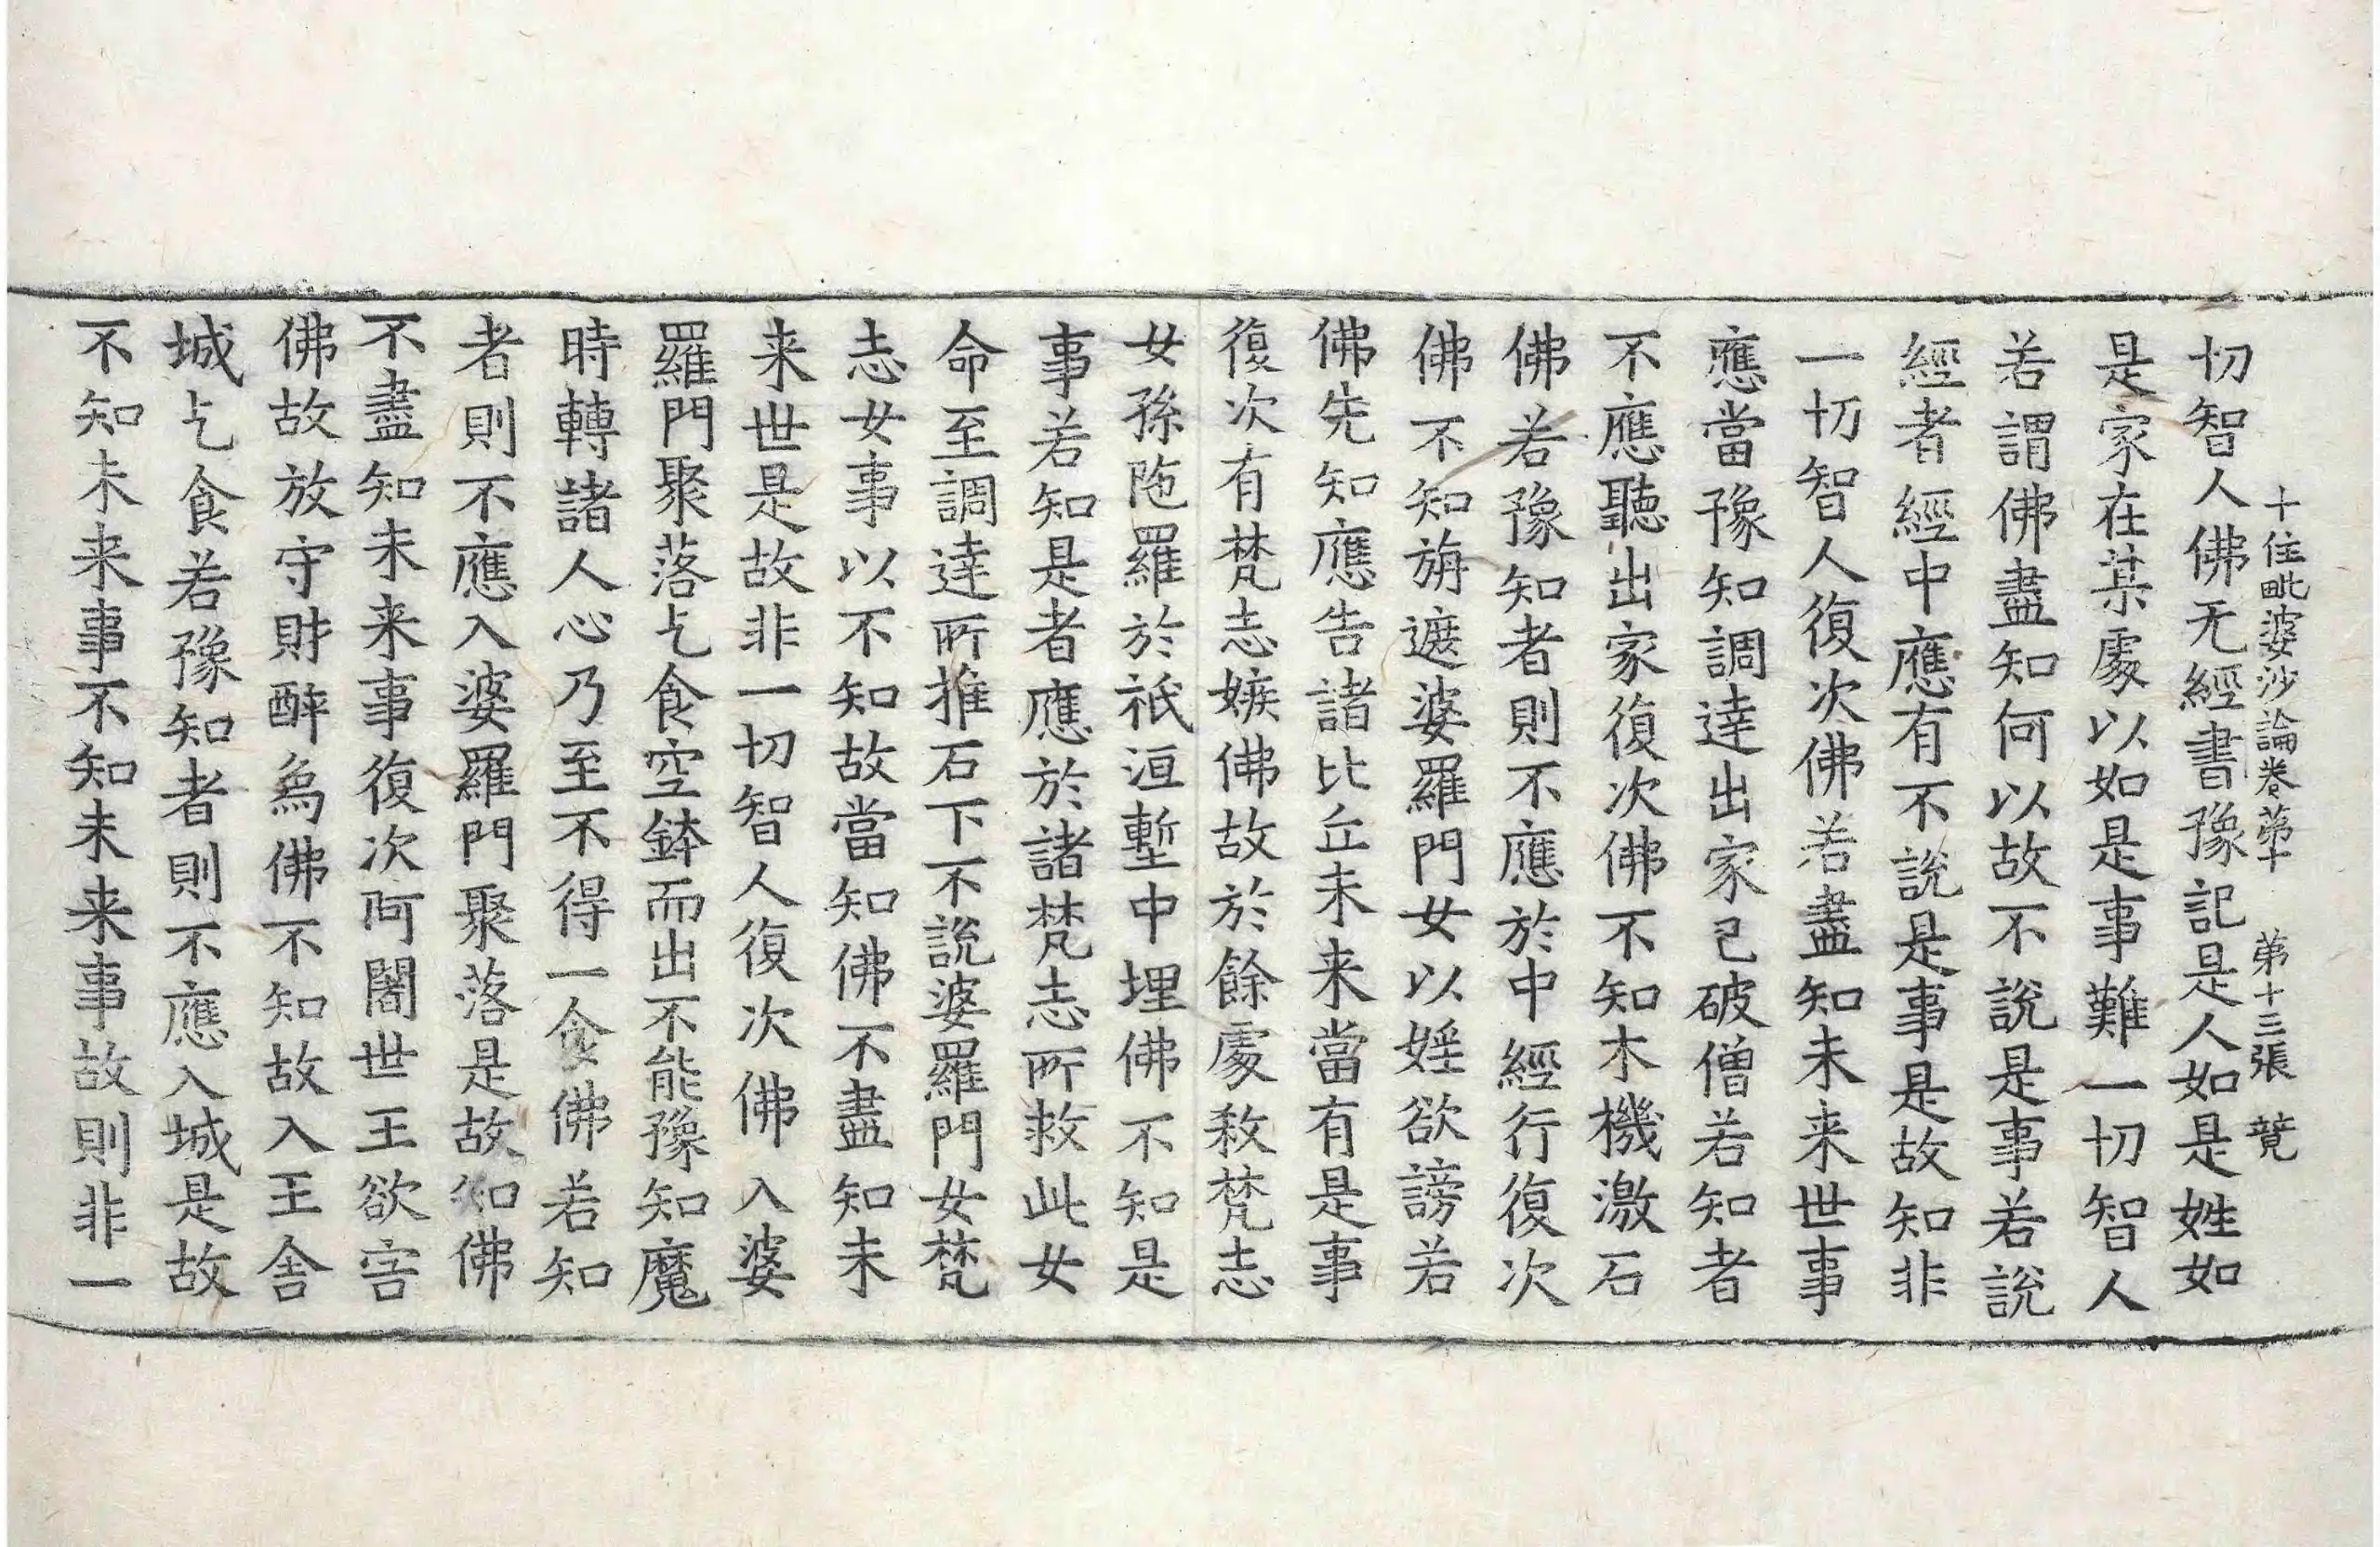 十住毗婆沙論卷苐十　弟十三張　競
切智人佛无經書豫記是人如是姓如
是家在某處以如是事難一切智人
若謂佛盡知何以故不說是事若說
經者經中應有不說是事是故知非
一切智人復次佛若盡知未来世事
應當豫知調達出家已破僧若知者
不應聽出家復次佛不知木機激石
佛若豫知者則不應於中經行復次
佛不知旃遮婆羅門女以婬欲謗若
佛先知應告諸比丘未来當有是事
復次有梵志嫉佛故於餘處敎梵志
女孫陁羅於祇洹塹中埋佛不知是
事若知是者應於諸梵志所救此女
命至調達所推石下不說婆羅門女梵
志女事以不知故當知佛不盡知未
来世是故非一切智人復次佛入婆
羅門聚落乞食空鉢而出不能豫知魔
時轉諸人心乃至不得一食佛若知
者則不應入婆羅門聚落是故知佛
不盡知未来事復次阿闍世王欲害
佛故放守財醉為佛不知故入王舍
城乞食若豫知者則不應入城是故
不知未来事不知未来事故則非一